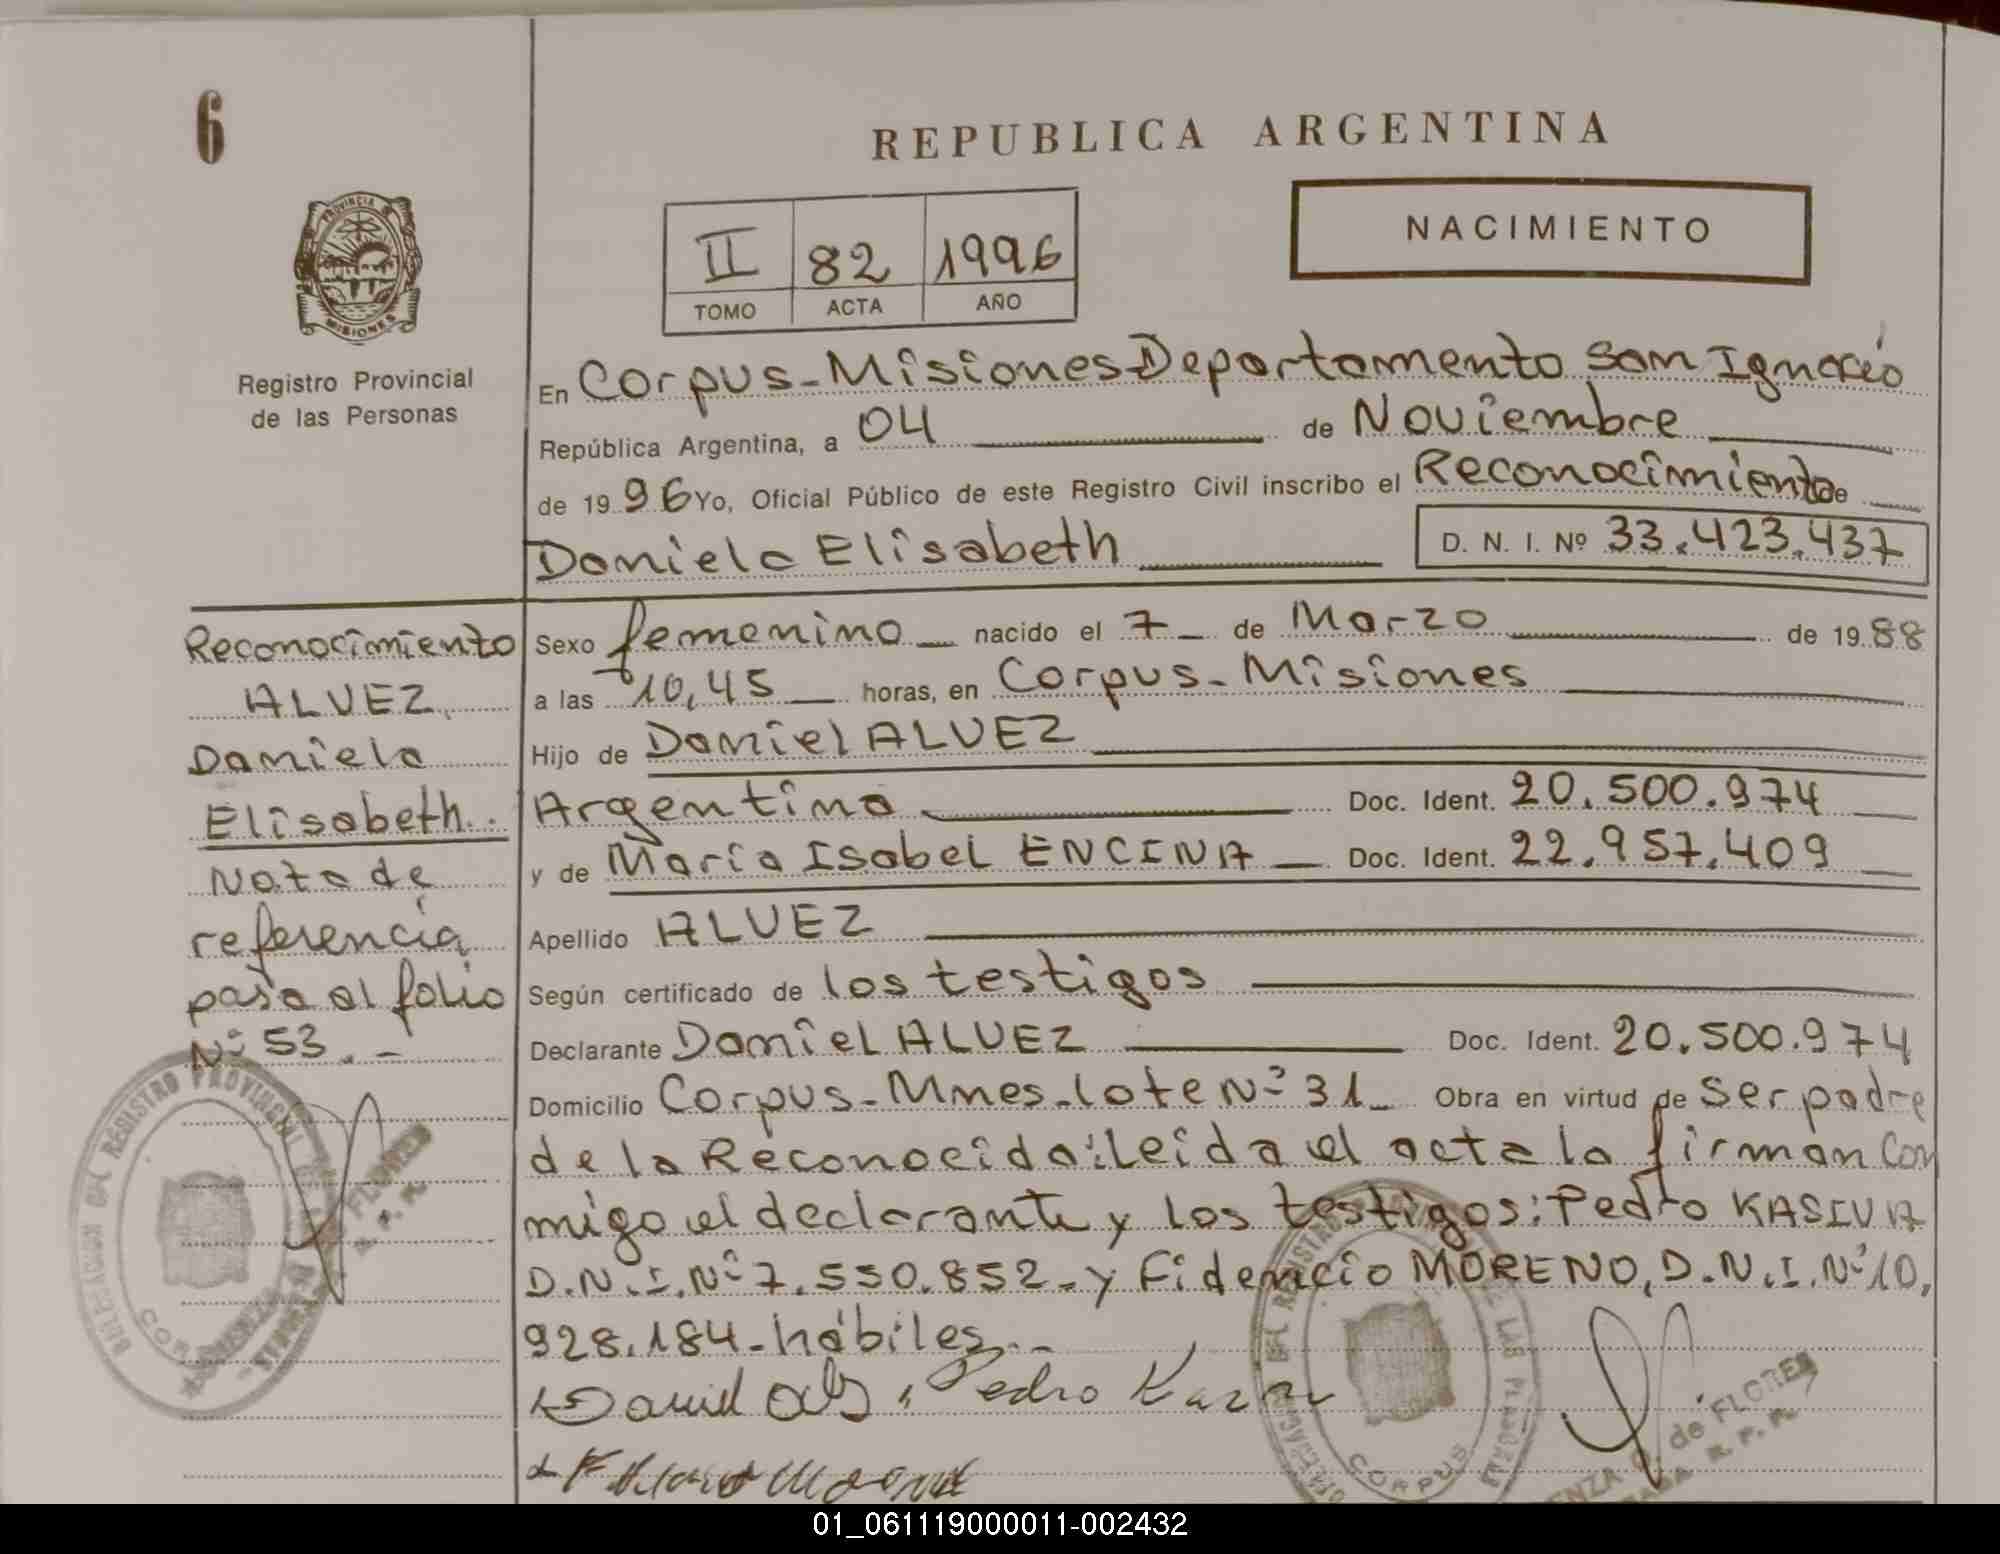 6
REPUBLICA ARGENTINA
PROVINCIA DE
MISIONES
II 82 1996
TOMO ACTA AÑO
NACIMIENTO
Registro Provincial
de las Personas
En Corpus-Misiones-Departamento San Ignacio
República Argentina, a 04 de Noviembre
de 1996 Yo, Oficial Público de este Registro Civil inscribo el Reconocimiento de
Daniela Elisabeth D. N. I. Nº 33.423.437
Reconocimiento
ALVEZ,
Daniela
Elisabeth.
Nota de
referencia
pasa al folio
Nº 53.-
Sexo femenino nacido el 7 de Marzo de 1988
a las 10,45 horas, en Corpus-Misiones
Hijo de Daniel ALVEZ
Argentino Doc. Ident. 20.500.974
y de María Isabel ENCINA Doc. Ident. 22.957.409
Apellido ALVEZ
Según certificado de los testigos
Declarante Daniel ALVEZ Doc. Ident. 20.500.974
Domicilio Corpus-Mnes-lote Nº 31 Obra en virtud de ser padre
de la Reconocida: Leida el acta la firman con
migo el declarante y los testigos: Pedro KASIVA
D.N.I. Nº 7.550.852-y Fidencio MORENO, D.N.I. Nº 10,
928.184-hábiles.-
Daniel Pedro
DELEGACION DEL REGISTRO PROVINCIAL DE LAS PERSONAS
CORPUS
FLORES
DELEGACION DEL REGISTRO PROVINCIAL DE LAS PERSONAS
CORPUS
de FLORES
R. P. P.
01_061119000011-002432